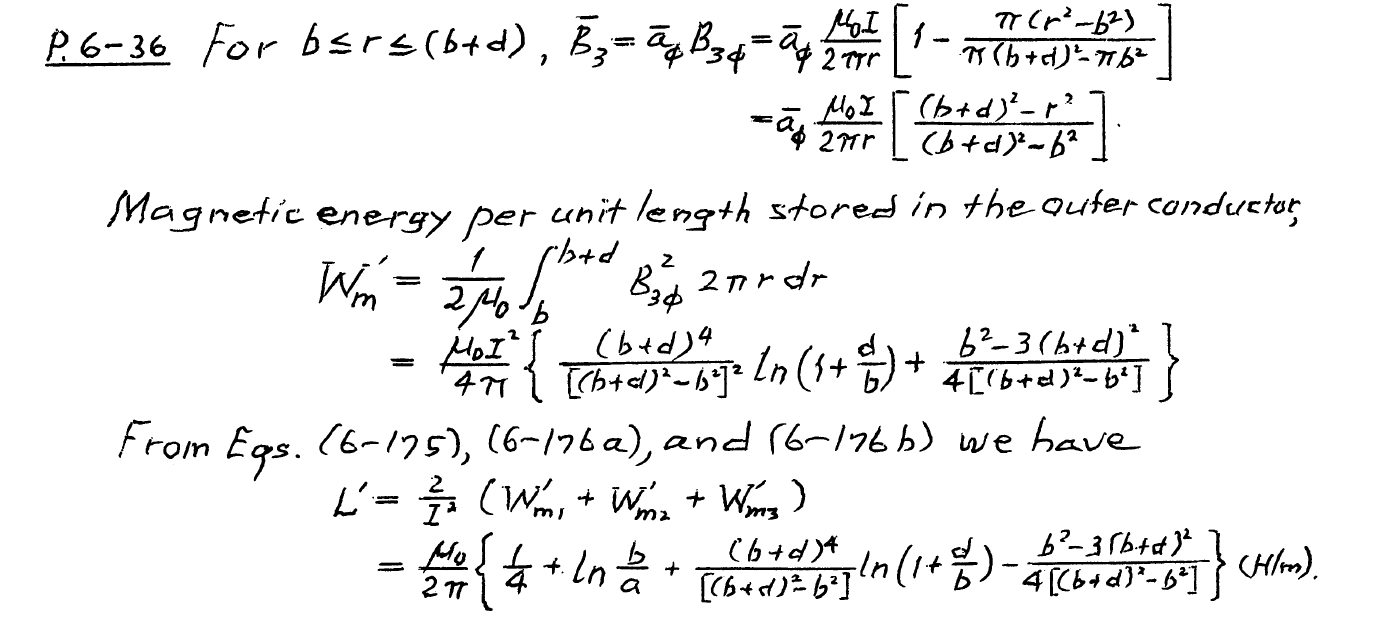 P.6-36 For b≤r≤(b+d), B̄₃ = ā_φ B₃φ = ā_φ μ₀I/2πr [1 - π(r²-b²)/π(b+d)²-πb²]
= ā_φ μ₀I/2πr [(b+d)²-r²/(b+d)²-b²].
Magnetic energy per unit length stored in the outer conductor,
W′m = 1/2μ₀ ∫_b^{b+d} B²₃φ 2πr dr
= μ₀I²/4π { (b+d)⁴/[(b+d)²-b²]² ln(1+d/b) + b²-3(b+d)²/4[(b+d)²-b²] }
From Eqs. (6-175), (6-176a), and (6-176b) we have
L′ = 2/I² (W′m₁ + W′m₂ + W′m₃)
= μ₀/2π { 1/4 + ln b/a + (b+d)⁴/[(b+d)²-b²] ln(1+d/b) - b²-3(b+d)²/4[(b+d)²-b²] } (H/m).